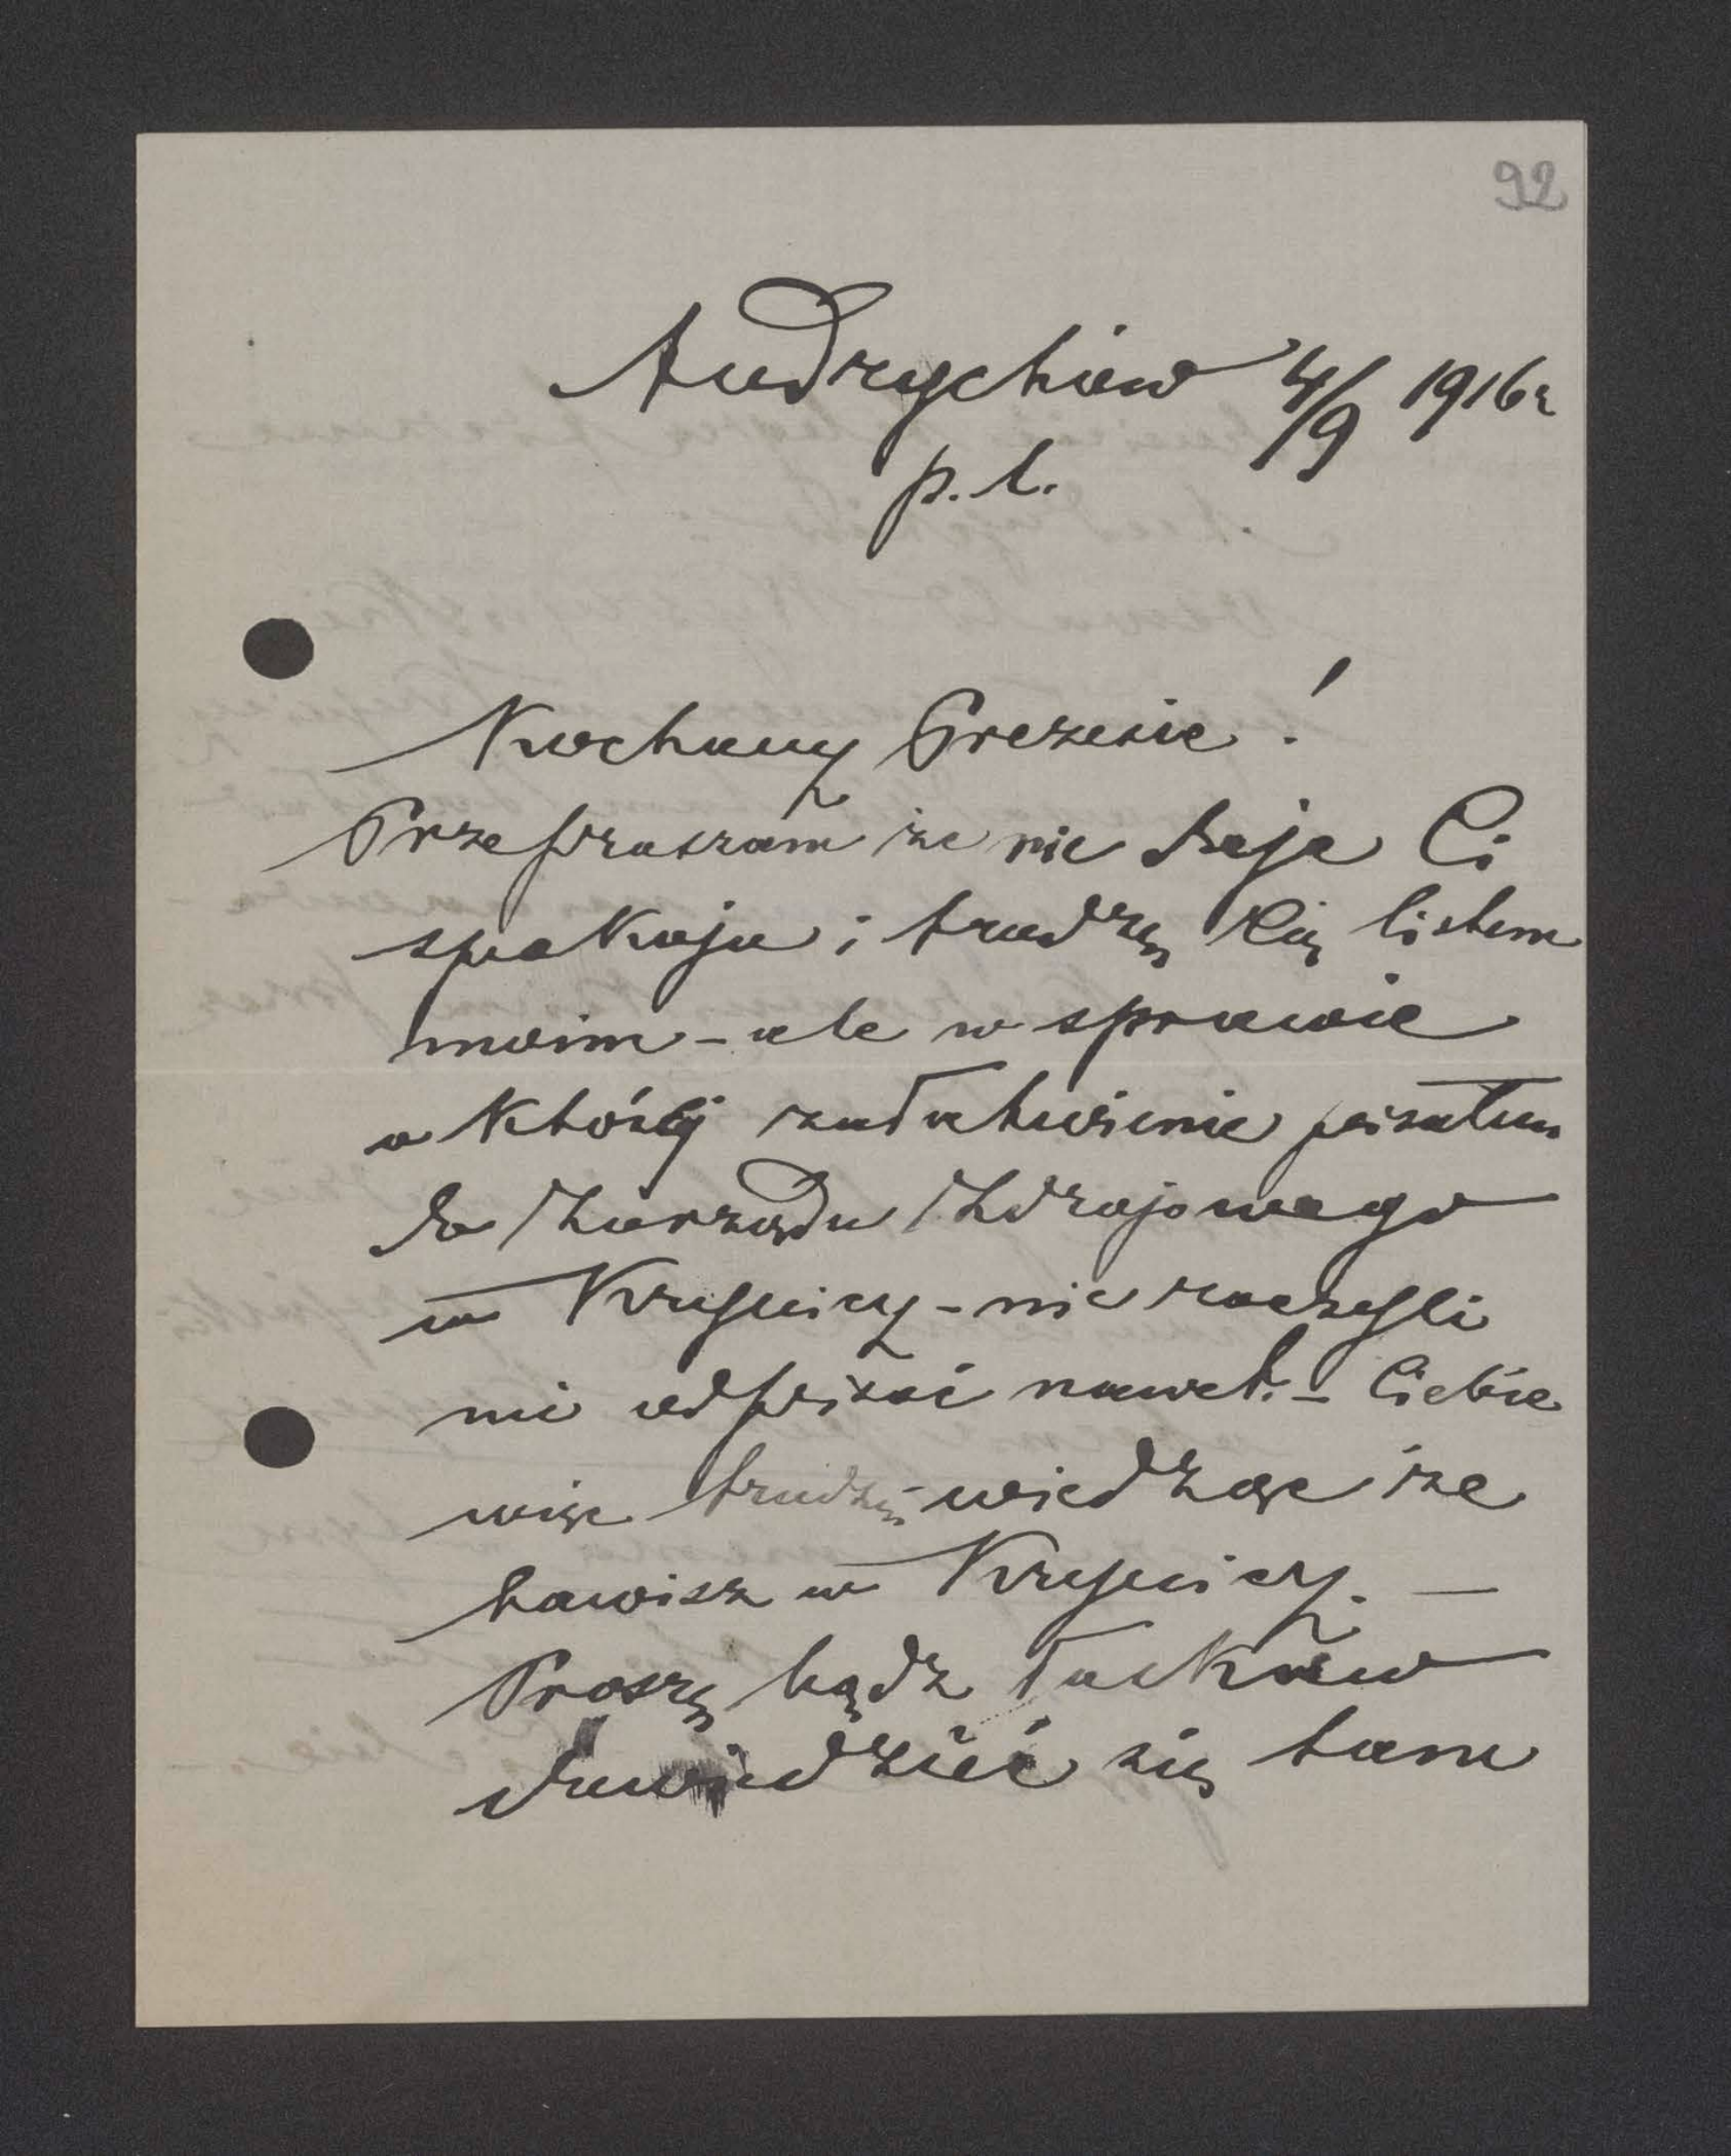 92
Andrychów 4/9 1916 r
p. l.
Kochany Prezesie!
Przepraszam że nie daje Ci
spokoju i trudzę Cię listem
moim - ale w sprawie
o któréj załatwienie pisałem
do Zarządu Zdrojowego
w Krynicy - nie raczyli
mi odpisać nawet. - Ciebie
więc trudzę wiedząc że
bawisz w Krynicy. -
Proszę bądz łaskaw
dowiedzieć się tam